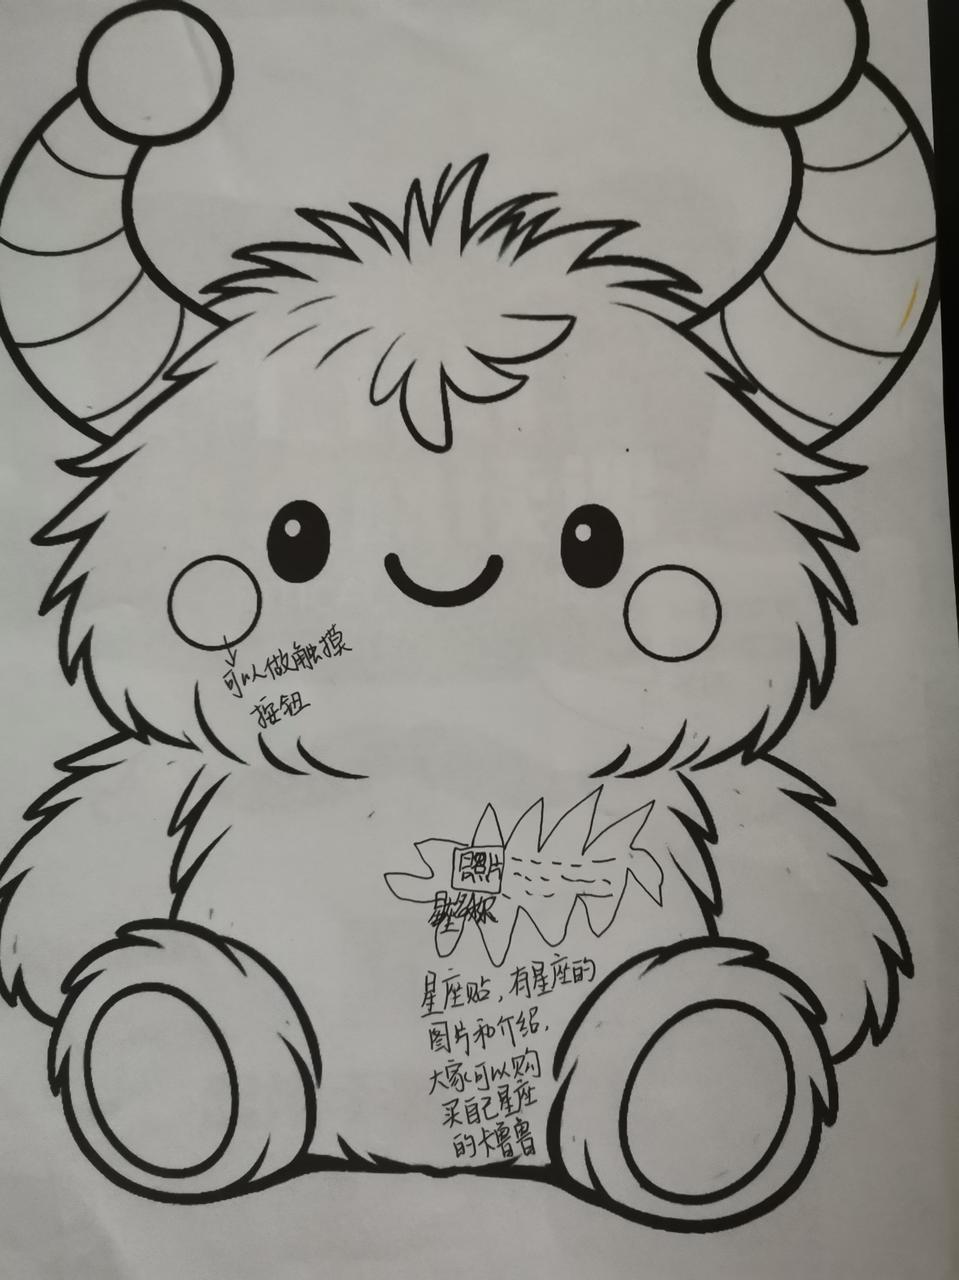 可以做触摸
按钮
照片
星座名称
星座贴，有星座的
图片和介绍，
大家可以购
买自己星座
的卡鲁鲁